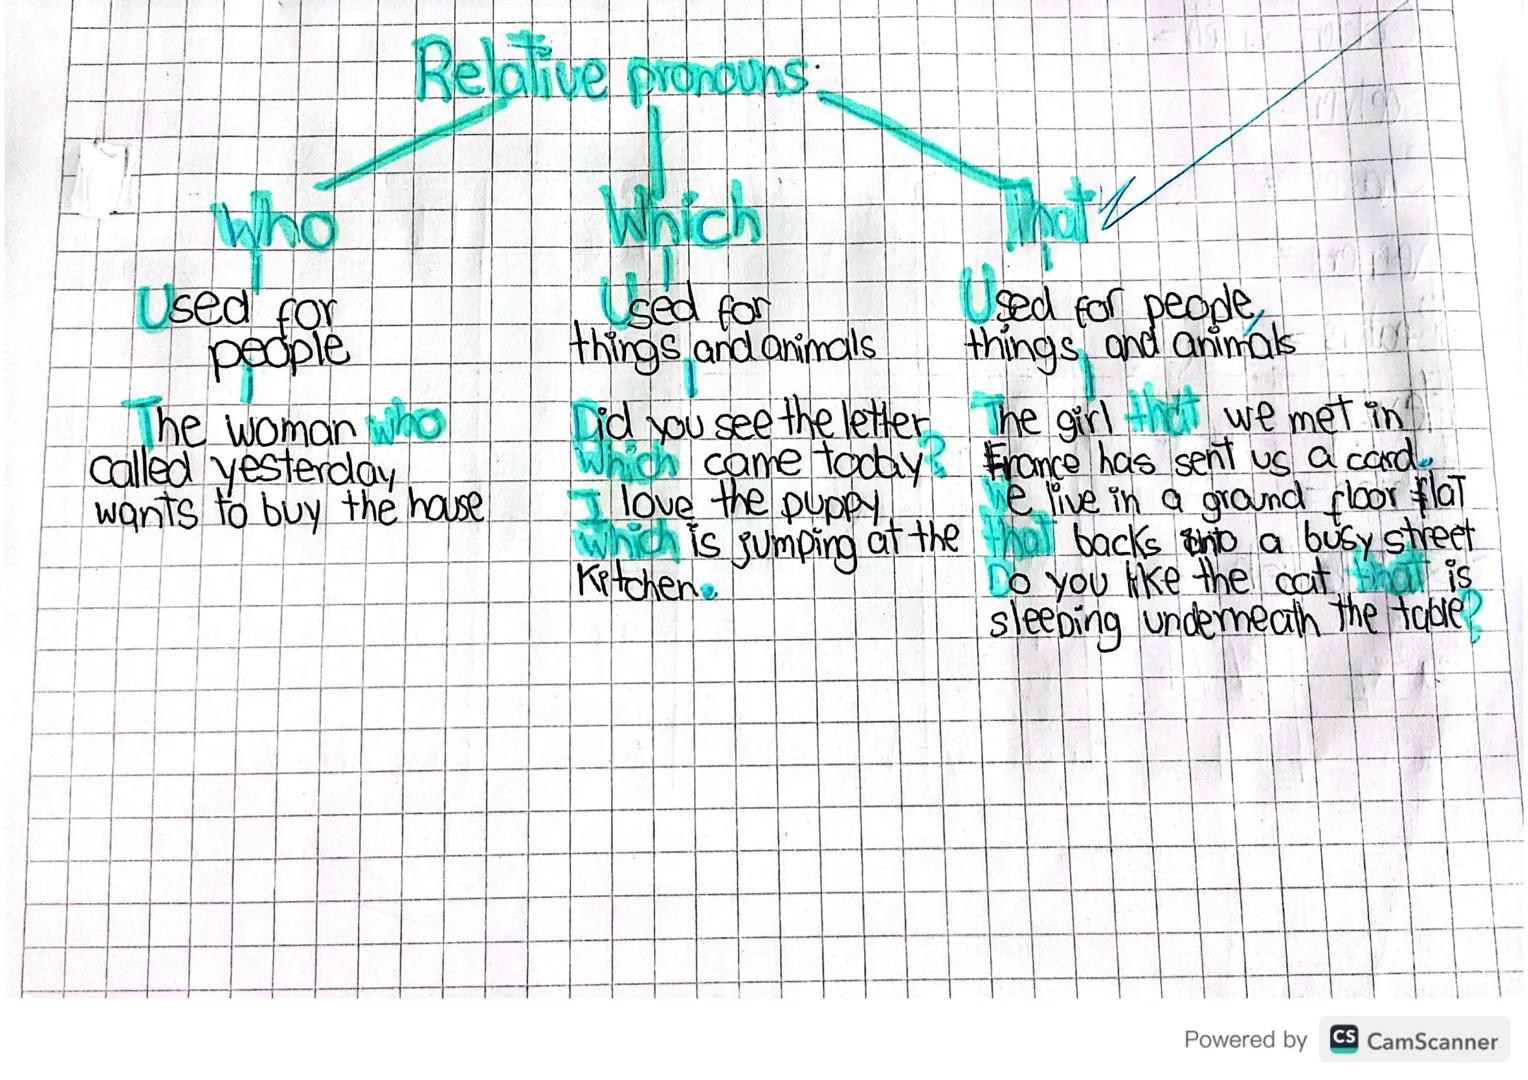 Relative pronouns.
Who
Used for
people
The woman who
called yesterday
wants to buy the house
Which
Used for
things and animals
Did you see the letter
which came today?
I love the puppy
which is jumping at the
Kitchen.
That
Used for people,
things, and animals
The girl that we met in
France has sent us a card.
We live in a ground floor flat
that backs onto a busy street
Do you like the cat that is
sleeping underneath the table?
Powered by CS CamScanner